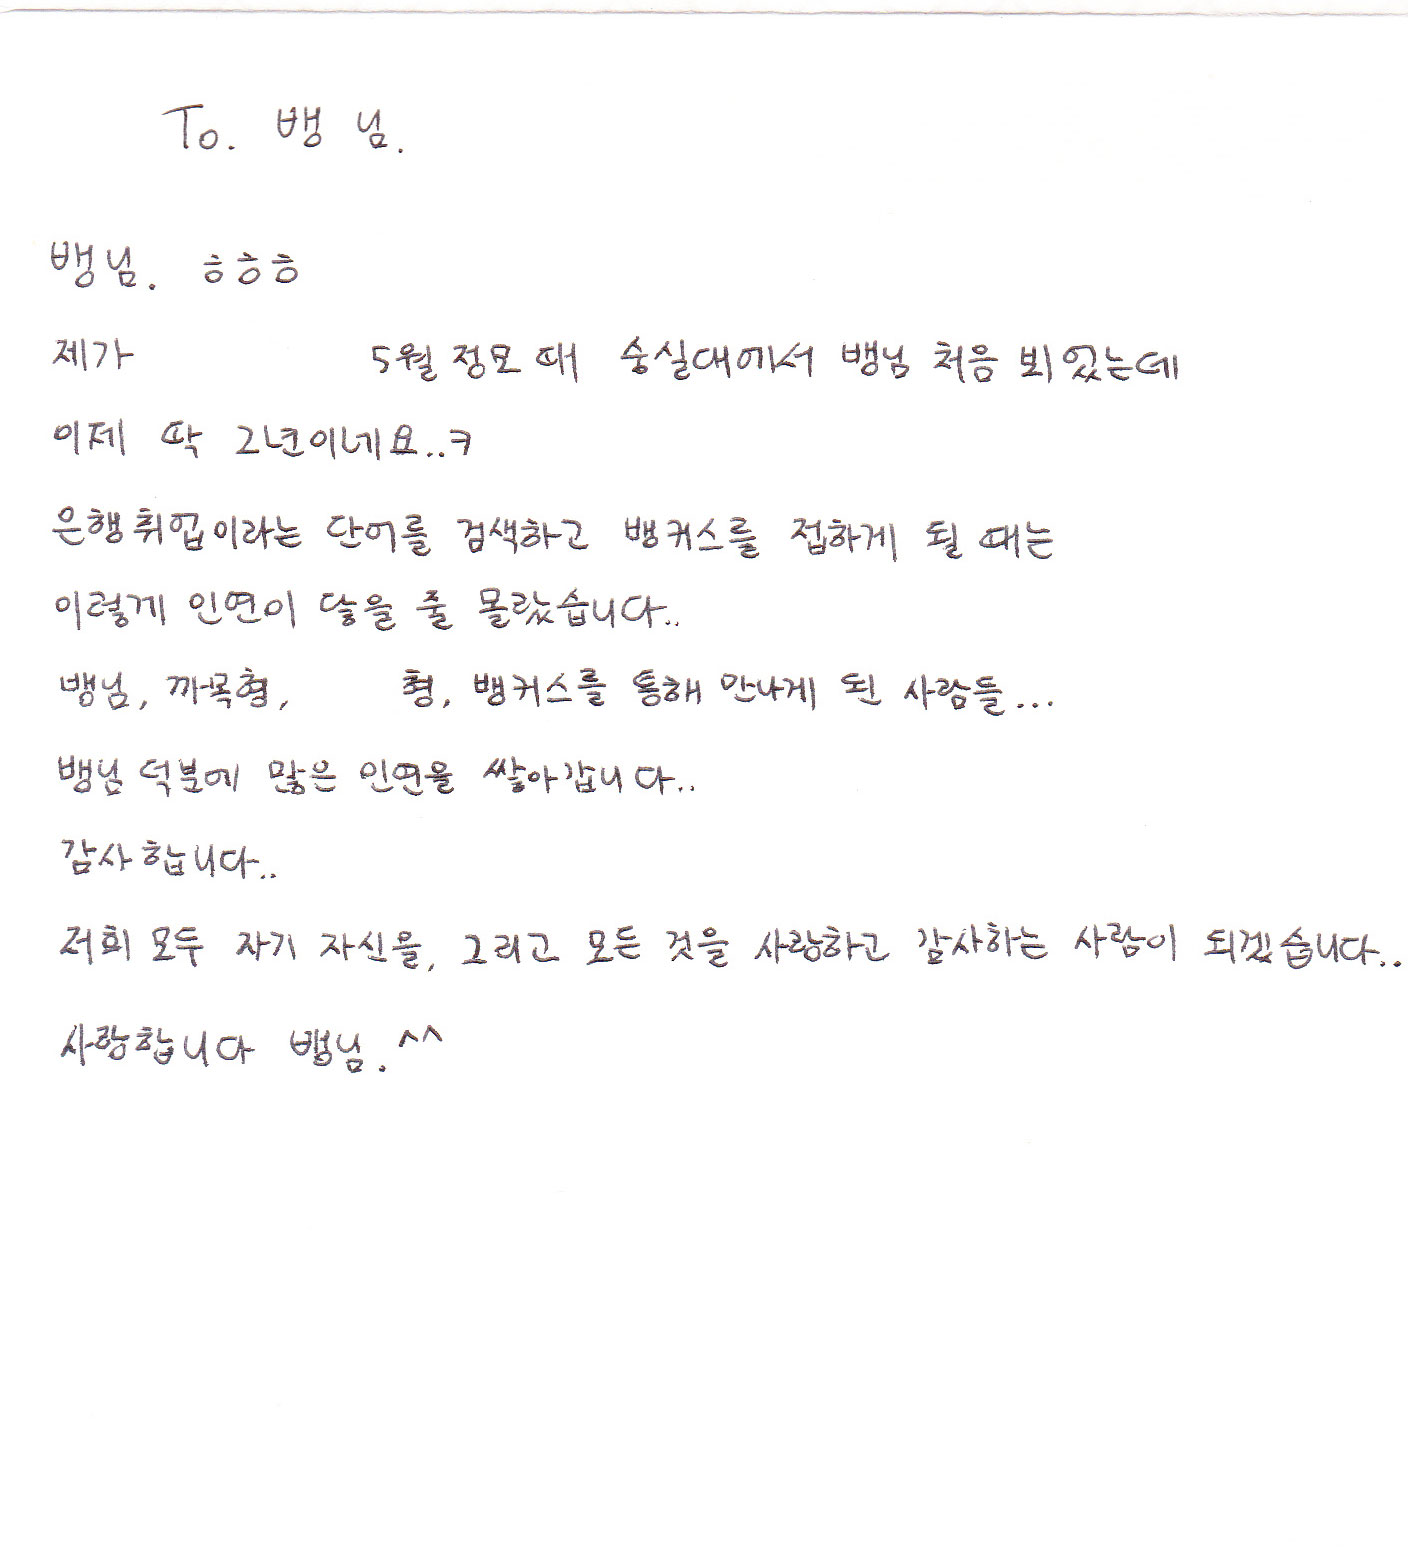 To. 뱅 님.
뱅님. ㅎㅎㅎ
제가 5월 정모 때 숭실대에서 뱅님 처음 뵈었는데
이제 딱 2년이네요..ㅋ
은행취업이라는 단어를 검색하고 뱅커스를 접하게 될 때는
이렇게 인연이 닿을 줄 몰랐습니다..
뱅님, 까목형, 형, 뱅커스를 통해 만나게 된 사람들...
뱅님 덕분에 많은 인연을 쌓아갑니다..
감사합니다..
저희 모두 자기 자신을, 그리고 모든 것을 사랑하고 감사하는 사람이 되겠습니다..
사랑합니다 뱅님.^^